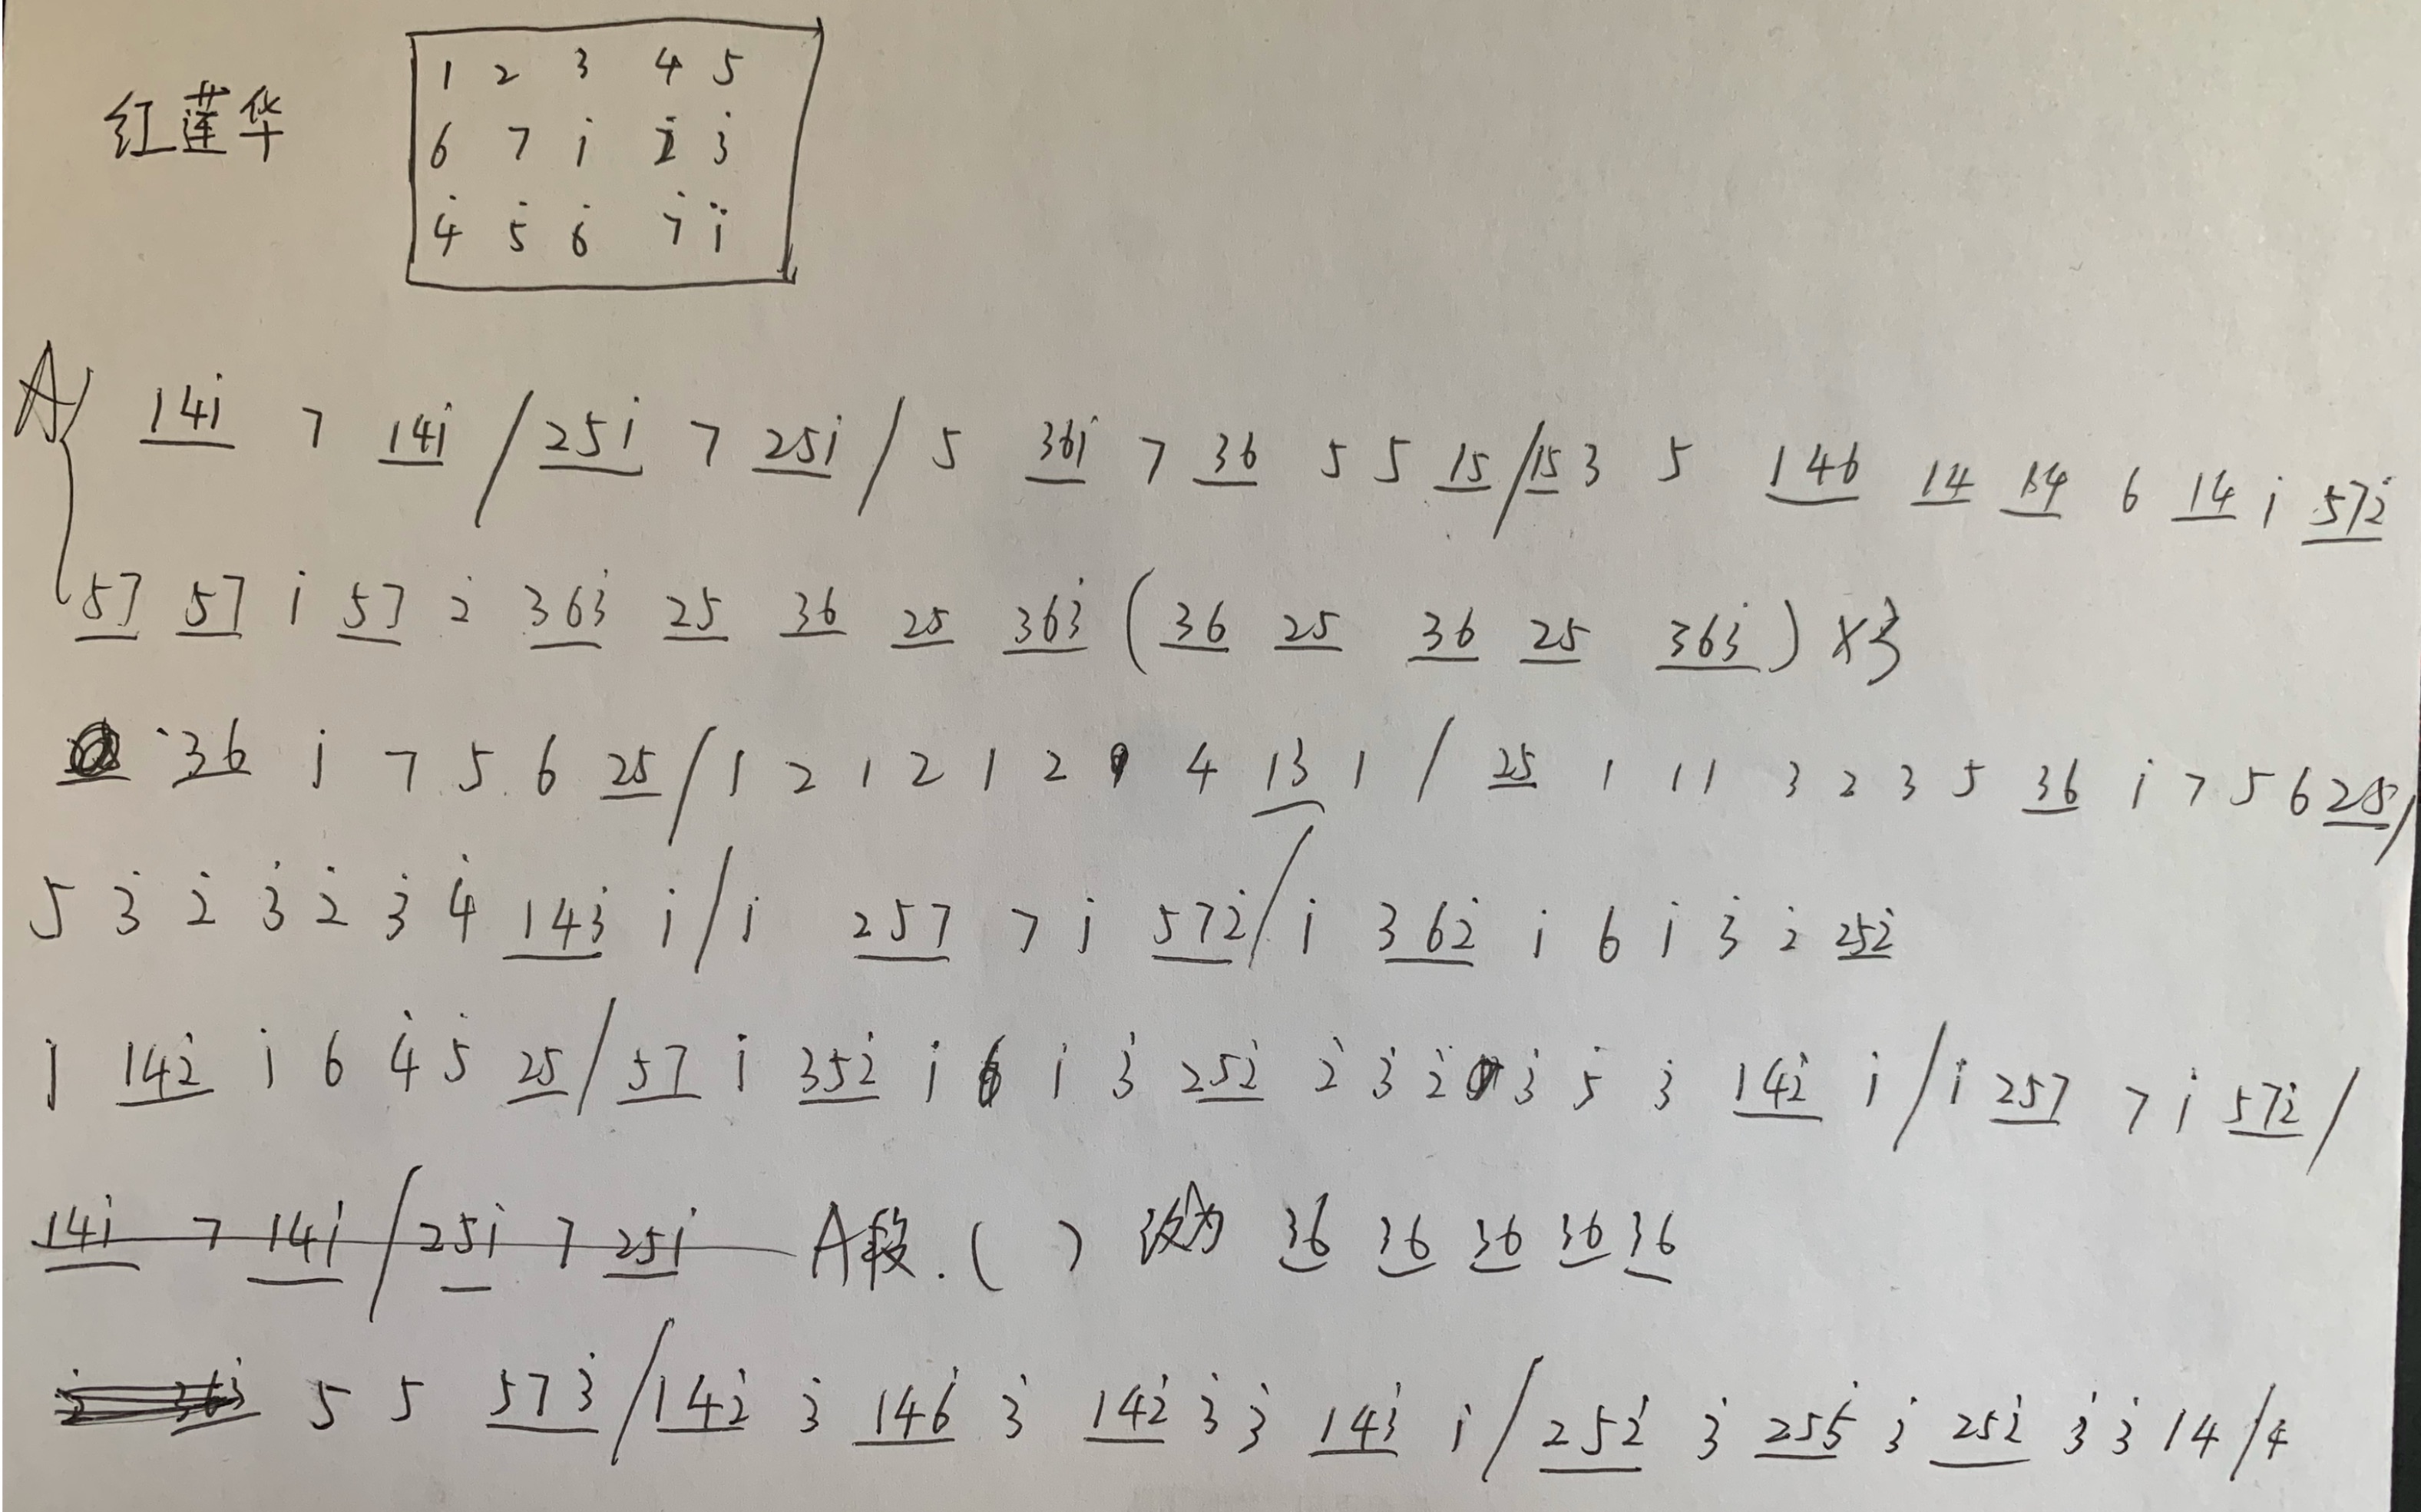 红莲华
1 2 3 4 5
6 7 i 2̇ 3̇
4̇ 5̇ 6̇ 7̇ ï
A 14i 7 14i / 25i 7 25i / 5 36i 7 36 5 5 15 / 15 3 5 146 14 14 6 14 i 572̇
57 57 i 57 2̇ 363̇ 25 36 25 363̇ ( 36 25 36 25 363̇ ) ×3
36 i 7 5 6 25 / 1 2 1 2 1 2 4 13 1 / 25 1 1 1 3 2 3 5 36 i 7 5 6 25 /
5 3̇ 2̇ 3̇ 2̇ 3̇ 4̇ 143̇ i / i 257 7 i 572̇ / i 362̇ i 6 i 3̇ 2̇ 252̇
i 142̇ i 6 4̇ 5̇ 25 / 57 i 352̇ i 6 i 3̇ 252̇ 2̇ 3̇ 2̇ 3̇ 5̇ 3̇ 142̇ i / i 257 7 i 572̇ /
14i 7 14i / 25i 7 25i A段.( ) 改为 36 36 36 36 36
5 5 573̇ / 142̇ 3̇ 146̇ 3̇ 142̇ 3̇ 3̇ 143̇ i / 252̇ 3̇ 255̇ 3̇ 252̇ 3̇ 3̇ 14 / 4